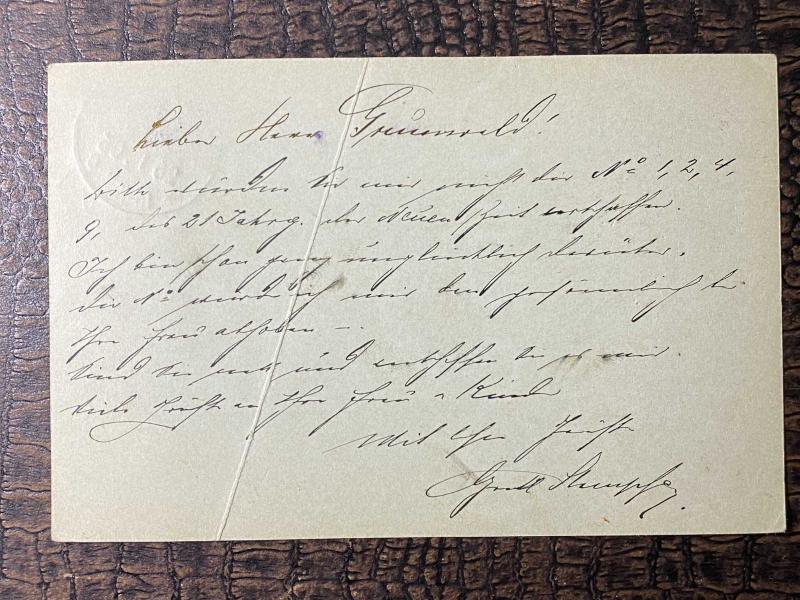 Lieber Herr Grünwald!
bitte würden Sie mir nicht die No 1, 2, 4,
9, des 21 Jahrg. der Neuen Zeit verschaffen.
Ich bin schon ganz unglücklich darüber.
die No würde ich mir dann persönlich bei
Ihrer Frau abholen –.
Sind Sie nett und verschaffen Sie es mir.
Viele Grüße an Ihre Frau u Kind
Mit besten Grüßen